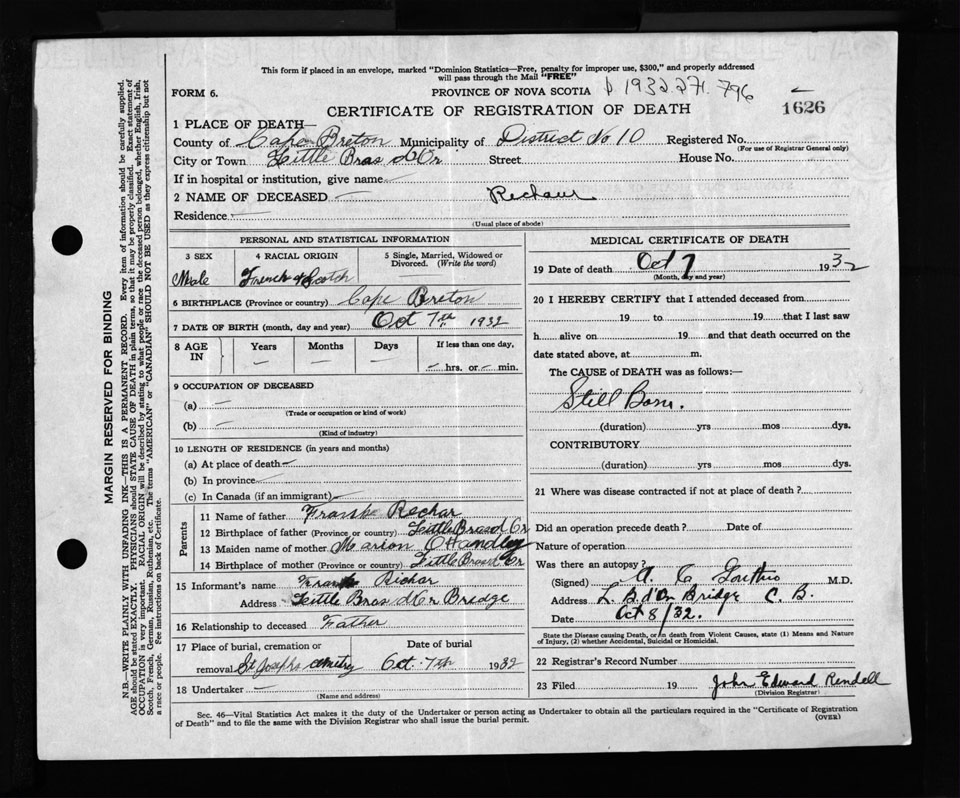 This form if placed in an envelope, marked "Dominion Statistics—Free, penalty for improper use, $300," and properly addressed
will pass through the Mail "FREE"
FORM 6.
PROVINCE OF NOVA SCOTIA
1932.271.796
CERTIFICATE OF REGISTRATION OF DEATH
1626
1 PLACE OF DEATH—
County of Cape Breton Municipality of District No 10 Registered No.
(For use of Registrar General only)
City or Town Little Bras d'Or Street House No.
If in hospital or institution, give name —
2 NAME OF DECEASED — Rechaur
Residence —
(Usual place of abode)
PERSONAL AND STATISTICAL INFORMATION
3 SEX 4 RACIAL ORIGIN 5 Single, Married, Widowed or Divorced. (Write the word)
Male French & Scotch
6 BIRTHPLACE (Province or country) Cape Breton
7 DATE OF BIRTH (month, day and year) Oct 7th 1932
8 AGE IN Years Months Days If less than one day,
— — — — hrs. or — min.
9 OCCUPATION OF DECEASED
(a) —
(Trade or occupation or kind of work)
(b) —
(Kind of industry)
10 LENGTH OF RESIDENCE (in years and months)
(a) At place of death —
(b) In province —
(c) In Canada (if an immigrant) —
Parents
11 Name of father Frank Rechar
12 Birthplace of father (Province or country) Little Bras d Or
13 Maiden name of mother Marion O Handley
14 Birthplace of mother (Province or country) Little Bras d Or
15 Informant's name Frank Richar
Address Little Bras d Or Bridge
16 Relationship to deceased Father
17 Place of burial, cremation or Date of burial
removal St Josephs cemetry Oct. 7th 1932
18 Undertaker —
(Name and address)
MEDICAL CERTIFICATE OF DEATH
19 Date of death Oct 7 1932
(Month, day and year)
20 I HEREBY CERTIFY that I attended deceased from
19 to 19 that I last saw
h alive on 19 and that death occurred on
date stated above, at m.
The CAUSE of DEATH was as follows:—
Still Born.
(duration) yrs mos dys.
CONTRIBUTORY
(duration) yrs mos dys.
21 Where was disease contracted if not at place of death?
Did an operation precede death? Date of
Nature of operation
Was there an autopsy?
(Signed) A. C. M.D.
Address L. B. d'Or Bridge C. B.
Date Oct 8/32.
State the Disease causing Death, or in death from Violent Causes, state (1) Means and Nature
of Injury, (2) whether Accidental, Suicidal or Homicidal.
22 Registrar's Record Number
23 Filed 19 John Edward Rendell
(Division Registrar)
Sec. 46—Vital Statistics Act makes it the duty of the Undertaker or person acting as Undertaker to obtain all the particulars required in the "Certificate of Registration
of Death" and to file the same with the Division Registrar who shall issue the burial permit.
(OVER)
MARGIN RESERVED FOR BINDING
N.B.—WRITE PLAINLY WITH UNFADING INK—THIS IS A PERMANENT RECORD. Every item of information should be carefully supplied.
AGE should be stated EXACTLY. PHYSICIANS should STATE CAUSE OF DEATH in plain terms, so that it may be properly classified. Exact statement of
OCCUPATION is very important. RACIAL ORIGIN will be described by stating to what people or race the deceased person belonged, whether English, Irish,
Scotch, French, German, Russian, Ruthenian, etc. The terms "AMERICAN" or "CANADIAN" SHOULD NOT BE USED as they express citizenship but not
a race or people. See instructions on back of Certificate.